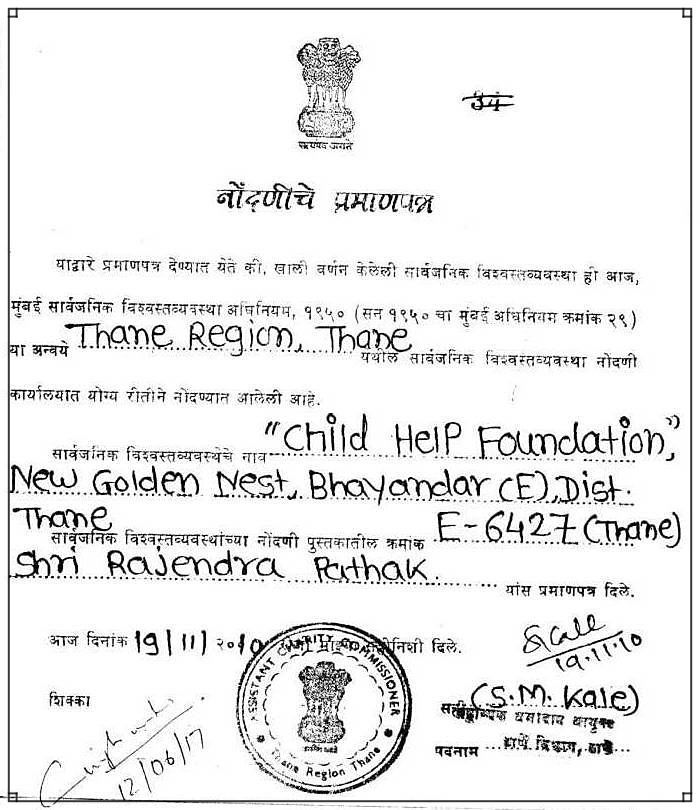 34
सत्यमेव जयते
नोंदणीचे प्रमाणपत्र
याद्वारे प्रमाणपत्र देण्यात येते की, खाली वर्णन केलेली सार्वजनिक विश्वस्तव्यवस्था ही आज,
मुंबई सार्वजनिक विश्वस्तव्यवस्था अधिनियम, १९५० (सन १९५० चा मुंबई अधिनियम क्रमांक २९)
या अन्वये Thane Region, Thane येथील सार्वजनिक विश्वस्तव्यवस्था नोंदणी
कार्यालयात योग्य रीतीने नोंदण्यात आलेली आहे.
सार्वजनिक विश्वस्तव्यवस्थेचे नाव "Child Help Foundation,"
New Golden Nest, Bhayandar (E), Dist.
Thane
सार्वजनिक विश्वस्तव्यवस्थांच्या नोंदणी पुस्तकातील क्रमांक E-6427 (Thane)
Shri Rajendra Pathak यांस प्रमाणपत्र दिले.
आज दिनांक 19/11/२०10 रोजी माझ्या सहीनिशी दिले.
19.11.10
शिक्का
ASSISTANT CHARITY COMMISSIONER
Thane Region Thane
(S.M. Kale)
पदनाम ठाणे विभाग, ठाणे.
12/06/17